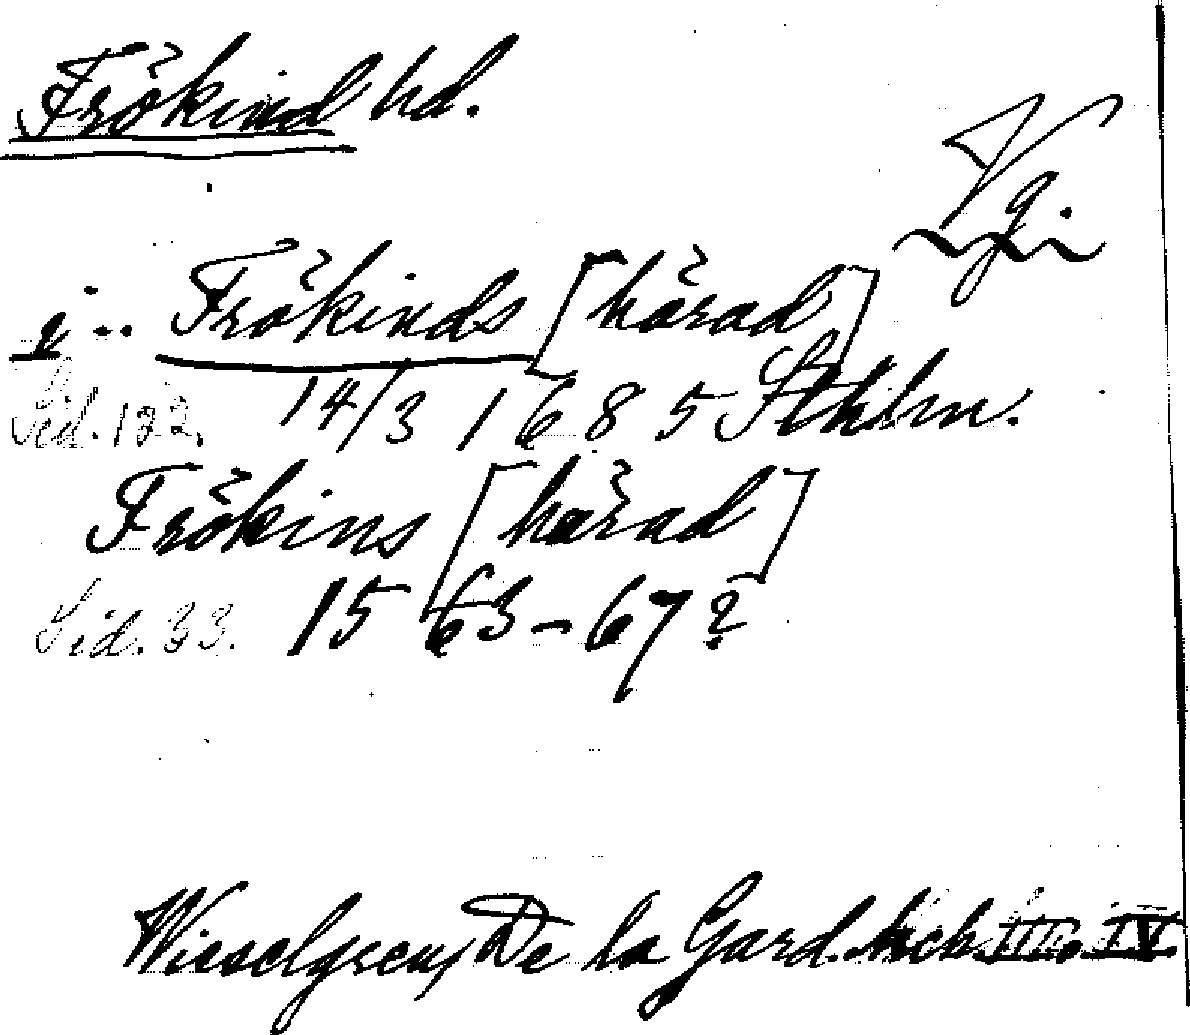 Frökind hd.
Vg.
i .. Frökinds [härad]
Sid. 122. 14/3 1685 Sthlm.
Frökins [härad]
Sid. 33. 1563-67?
Wieselgren, De la Gard. Arch. III. IV.